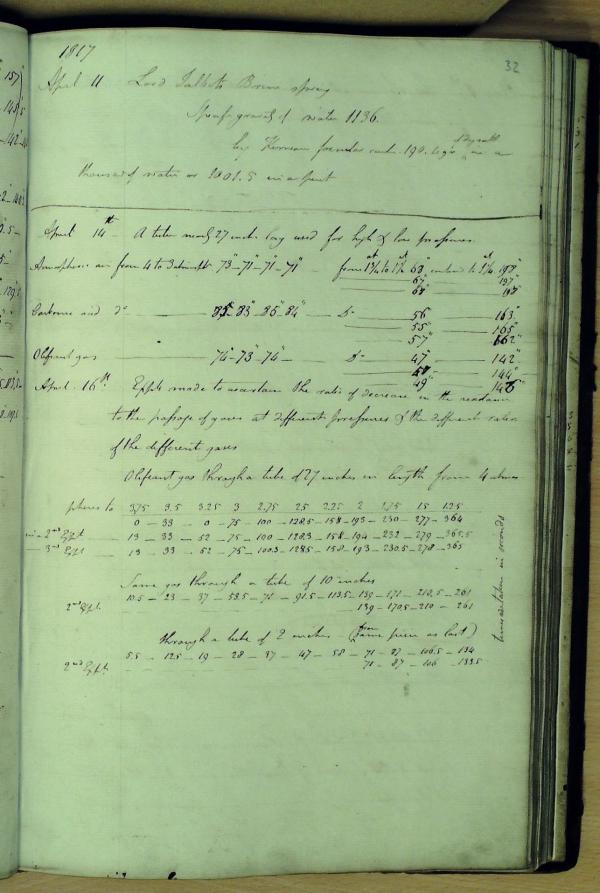 1817
32
April 11 Lord Talbots Brine spring
Specific gravity of water 1136.
by Kirwans formula
thousand of water or 3001.5 in a pint
April 14th A tube nearly 27 inches long used for high & low pressures
Atmospheric air from 4 to 3 atmosph 73" - 71" - 71" - 71" from 1 3/4 at to 1 1/2 68" and to 1 1/4 at 198"
67" 197"
68" 198"
Carbonic acid do 85" 83" 85" 84" do 56" 163"
55" 165"
57" 162"
Olefiant gas 74" - 73" - 74" do 47" 142"
144"
49"
April 16th Expts made to ascertain the ratio of decrease in the resistance
to the passage of gases at different pressures & the different ratios
of the different gases
Olefiant gas through a tube of 27 inches in length from 4 atmos
pheres to 3.75 3.5 3.25 3 2.75 2.5 2.25 2 1.75 1.5 1.25
0 - 33 - 0 - 75 - 100 - 128.5 - 158 - 193 - 230 - 277 - 364
in a 2nd Expt 13 - 33 - 52 - 75 - 100 - 128.3 - 158 - 194 - 232 - 279 - 365.5
3rd Expt 13 - 33 - 52 - 75 - 100.3 - 128.5 - 158 - 193 - 230.5 - 278 - 365
Same gas through a tube of 10 inches
10.5 - 23 - 37 - 53.5 - 71 - 91.5 - 113.5 - 139 - 171 - 210.5 - 261
2nd Expt. 139 - 170.5 - 210 - 261
through a tube of 2 inches (from same piece as last)
5.5 - 12.5 - 19 - 28 - 37 - 47 - 58 - 71 - 87 - 106.5 - 134
2nd Expt. 71 - 87 - 106 - 133.5
times are taken in seconds